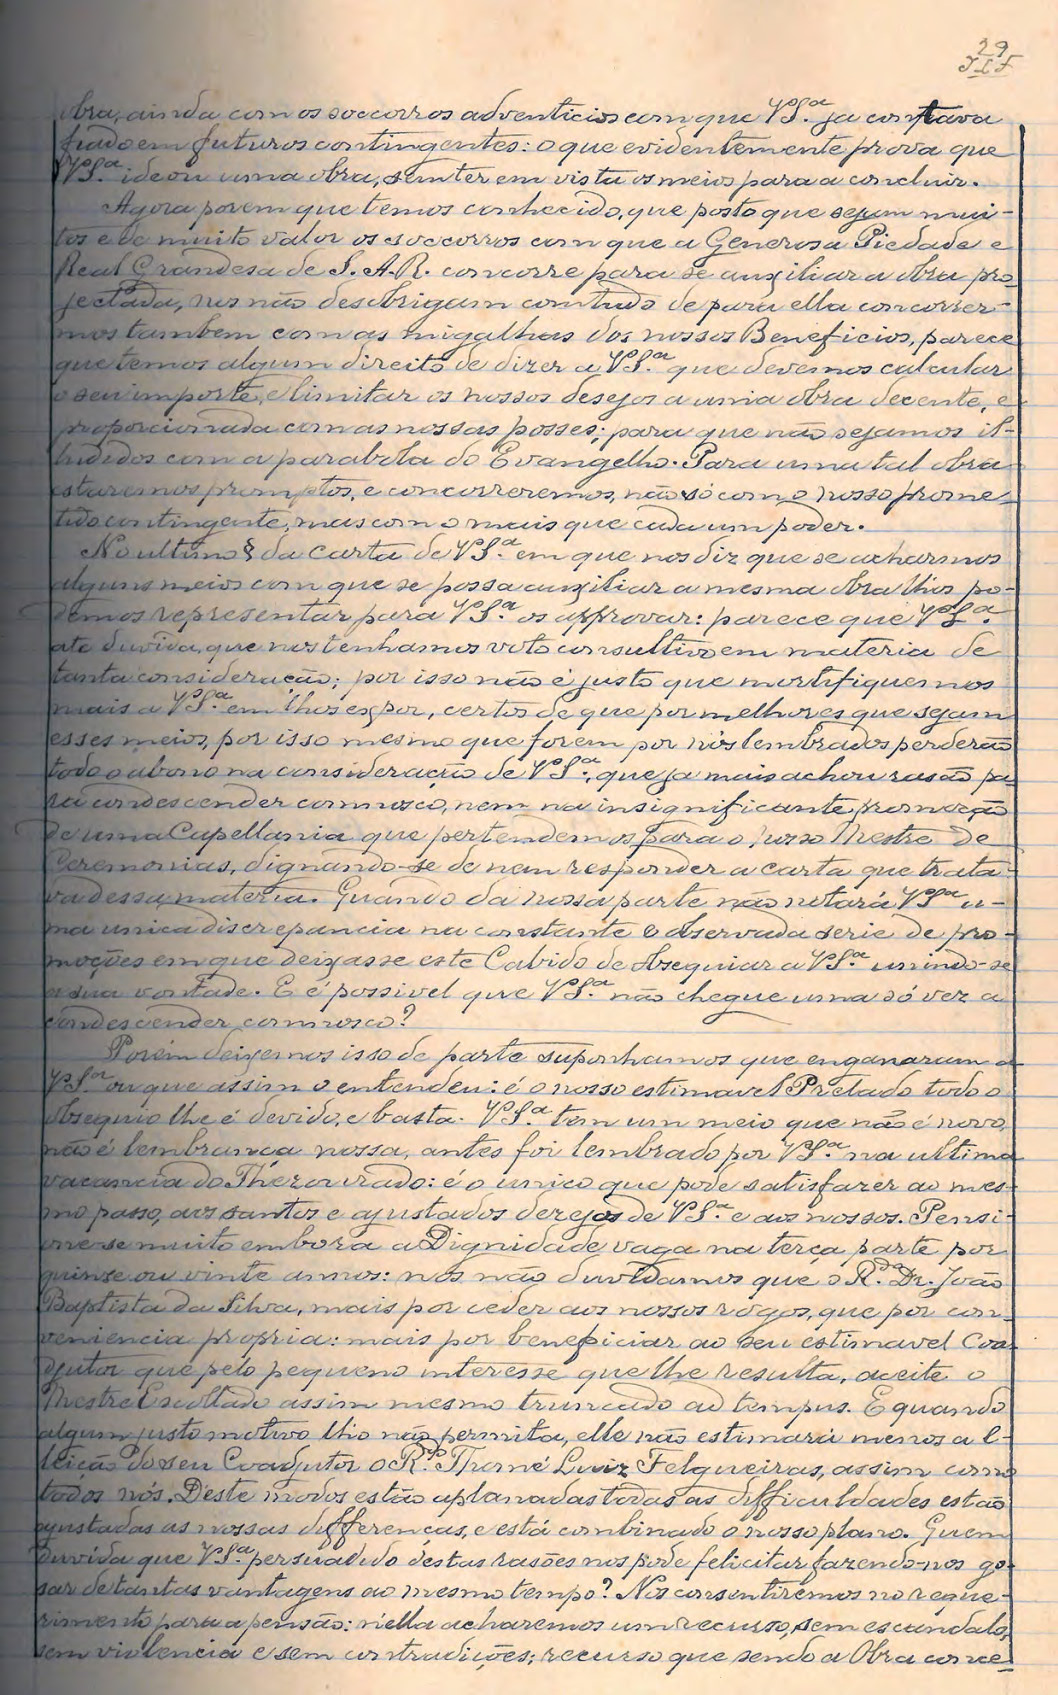 29
obra, ainda com os soccorros adventicios com que VSª ja contava
fiado em futuros contingentes: o que evidentemente prova que
VSª ideou uma obra, sem ter em vista os meios para a concluir.
Agora porem que temos conhecido, que posto que sejam mui-
tos e de muito valor os soccorros com que a Generosa Piedade e
Real Grandesa de S. A. R. concorre para se auxiliar a obra pro-
jectada, nos não desobrigam comtudo de para ella concorrer-
mos tambem com as migalhas dos nossos Beneficios, parece
que temos algum direito de dizer a VSª que devemos calcular
o seu importe, e limitar os nossos desejos a uma obra decente, e
proporcionada com as nossas posses; para que não sejamos il-
ludidos com a parabola do Evangelho. Para uma tal obra
estaremos promptos, e concorreremos, não só com o nosso prome-
tido contingente, mas com o mais que cada um poder.
No ultimo § da carta de VSª em que nos diz que se acharmos
alguns meios com que se possa auxiliar a mesma obra lhos po-
demos representar para VSª os approvar: parece que VSª
ate duvida, que nos tenhamos voto consultivo em materia de
tanta consideração; por isso não é justo que mortifiquemos
mais a VSª em lhos expor, certos de que por melhores que sejam
esses meios, por isso mesmo que forem por nós lembrados perderão
todo o abono na consideração de VSª, que ja mais achou rasão pa
ra condescender comnosco, nem na insignificante promoção
de uma Capellania que pertendemos para o nosso Mestre de
Ceremonias, dignando-se de nem responder a carta que trata-
va dessa materia. Quando da nossa parte não notará VSª u-
ma unica discrepancia na constante e observada serie de pro-
moções em que deixasse este Cabido de obsequiar a VSª unindo-se
a sua vontade. E é possivel que VSª não chegue uma só vez a
condescender comnosco?
Porém deixemos isso de parte suponhamos que enganaram a
VSª ou que assim o entendeu: é o nosso estimavel Prelado todo o
obsequio lhe é devido, e basta. VSª tem um meio que não é novo,
não é lembrança nossa, antes foi lembrado por VSª na ultima
vacancia do Thezourado: é o unico que pode satisfazer ao mes-
mo passo, aos santos e ajustados desejos de VSª e aos nossos. Pensi-
one-se muito embora a Dignidade vaga na terça parte por
quinse ou vinte annos: nos não duvidamos que o R.do Dr. João
Baptista da Silva, mais por ceder aos nossos rogos, que por con-
veniencia propria: mais por beneficiar ao seu estimavel Coa-
djutor que pelo pequeno interesse que lhe resulta, aceite o
Mestre Escollado assim mesmo truncado ad tempus. E quando
algum justo motivo lho não permita, elle não estimará menos a el-
leição do seu Coadjutor o R.do Thomé Luiz Felgueiras, assim como
todos nós. Deste modos estão aplanadas todas as difficuldades estão
ajustadas as nossas differenças, e está combinado o nosso plano. Quem
duvida que VSª persuadido destas rasões nos póde felicitar fazendo-nos go-
sar de tantas vantagens ao mesmo tempo? Nos consentiremos no reque-
rimento para a pensão: n'ella acharemos um recurso, sem escandalo,
sem violencia e sem contradições; recurso que sendo a Obra conve-